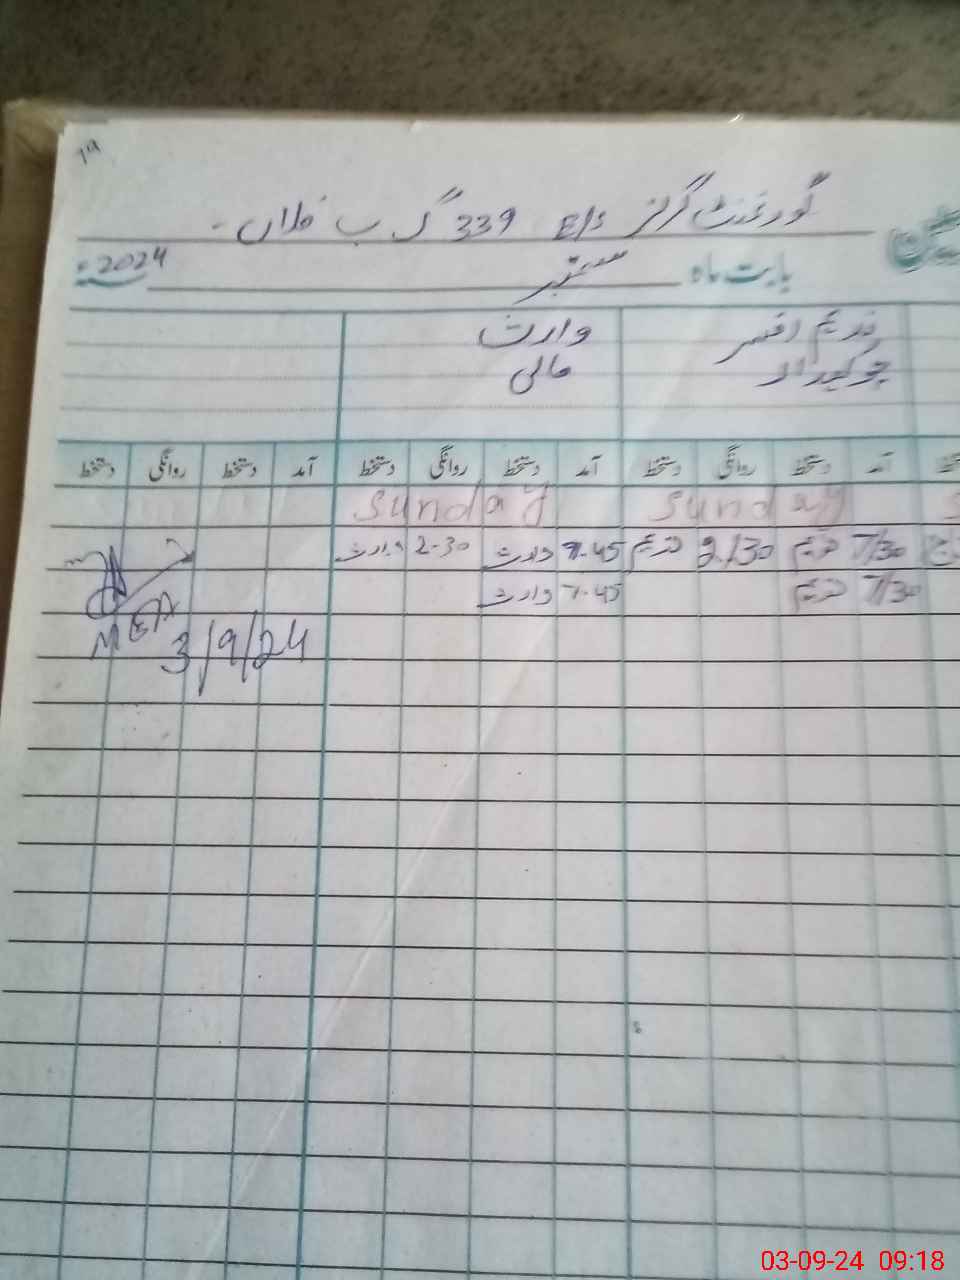 19
گورنمنٹ گرلز E/S 339 گ ب فلاں -
بابت ماہ ستمبر 2024ء
ندیم افسر وارث
چوکیدار مالی
آمد دستخط روانگی دستخط آمد دستخط روانگی دستخط آمد دستخط روانگی دستخط
Sunday Sunday
7/30 ندیم 2/30 ندیم 7-45 وارث 2-30 وارث
7/30 ندیم 7-45 وارث
MEA
3/9/24
03-09-24 09:18